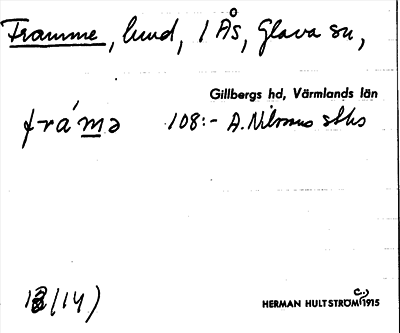 Framme, hund, 1 Ås, Glava sn,
Gillbergs hd, Värmlands län
frámə 108:- A. Nilssons sths
13(14)
HERMAN HULTSTRÖM c.) 1915